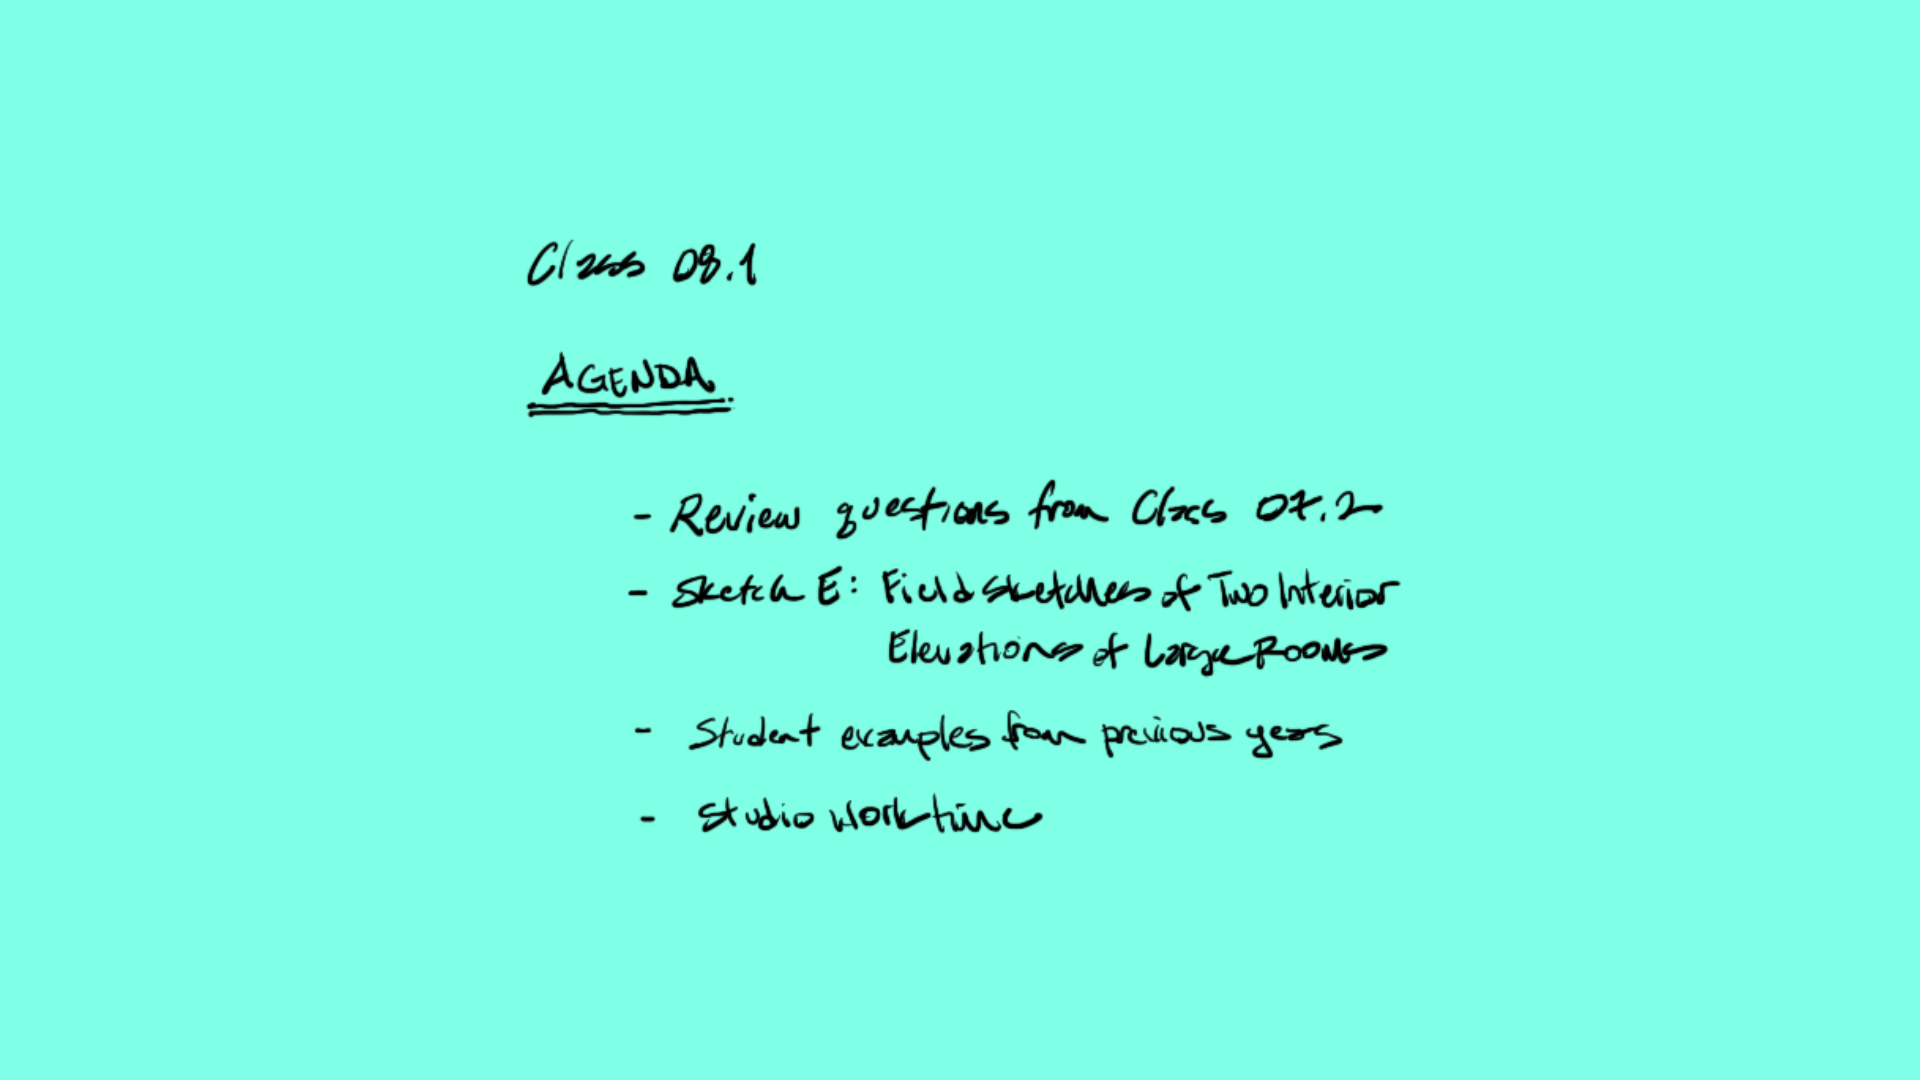 Class 08.1
AGENDA
- Review questions from Class 07.2
- Sketch E: Field Sketches of Two Interior
Elevations of Large Rooms
- Student examples from previous years
- Studio Work time